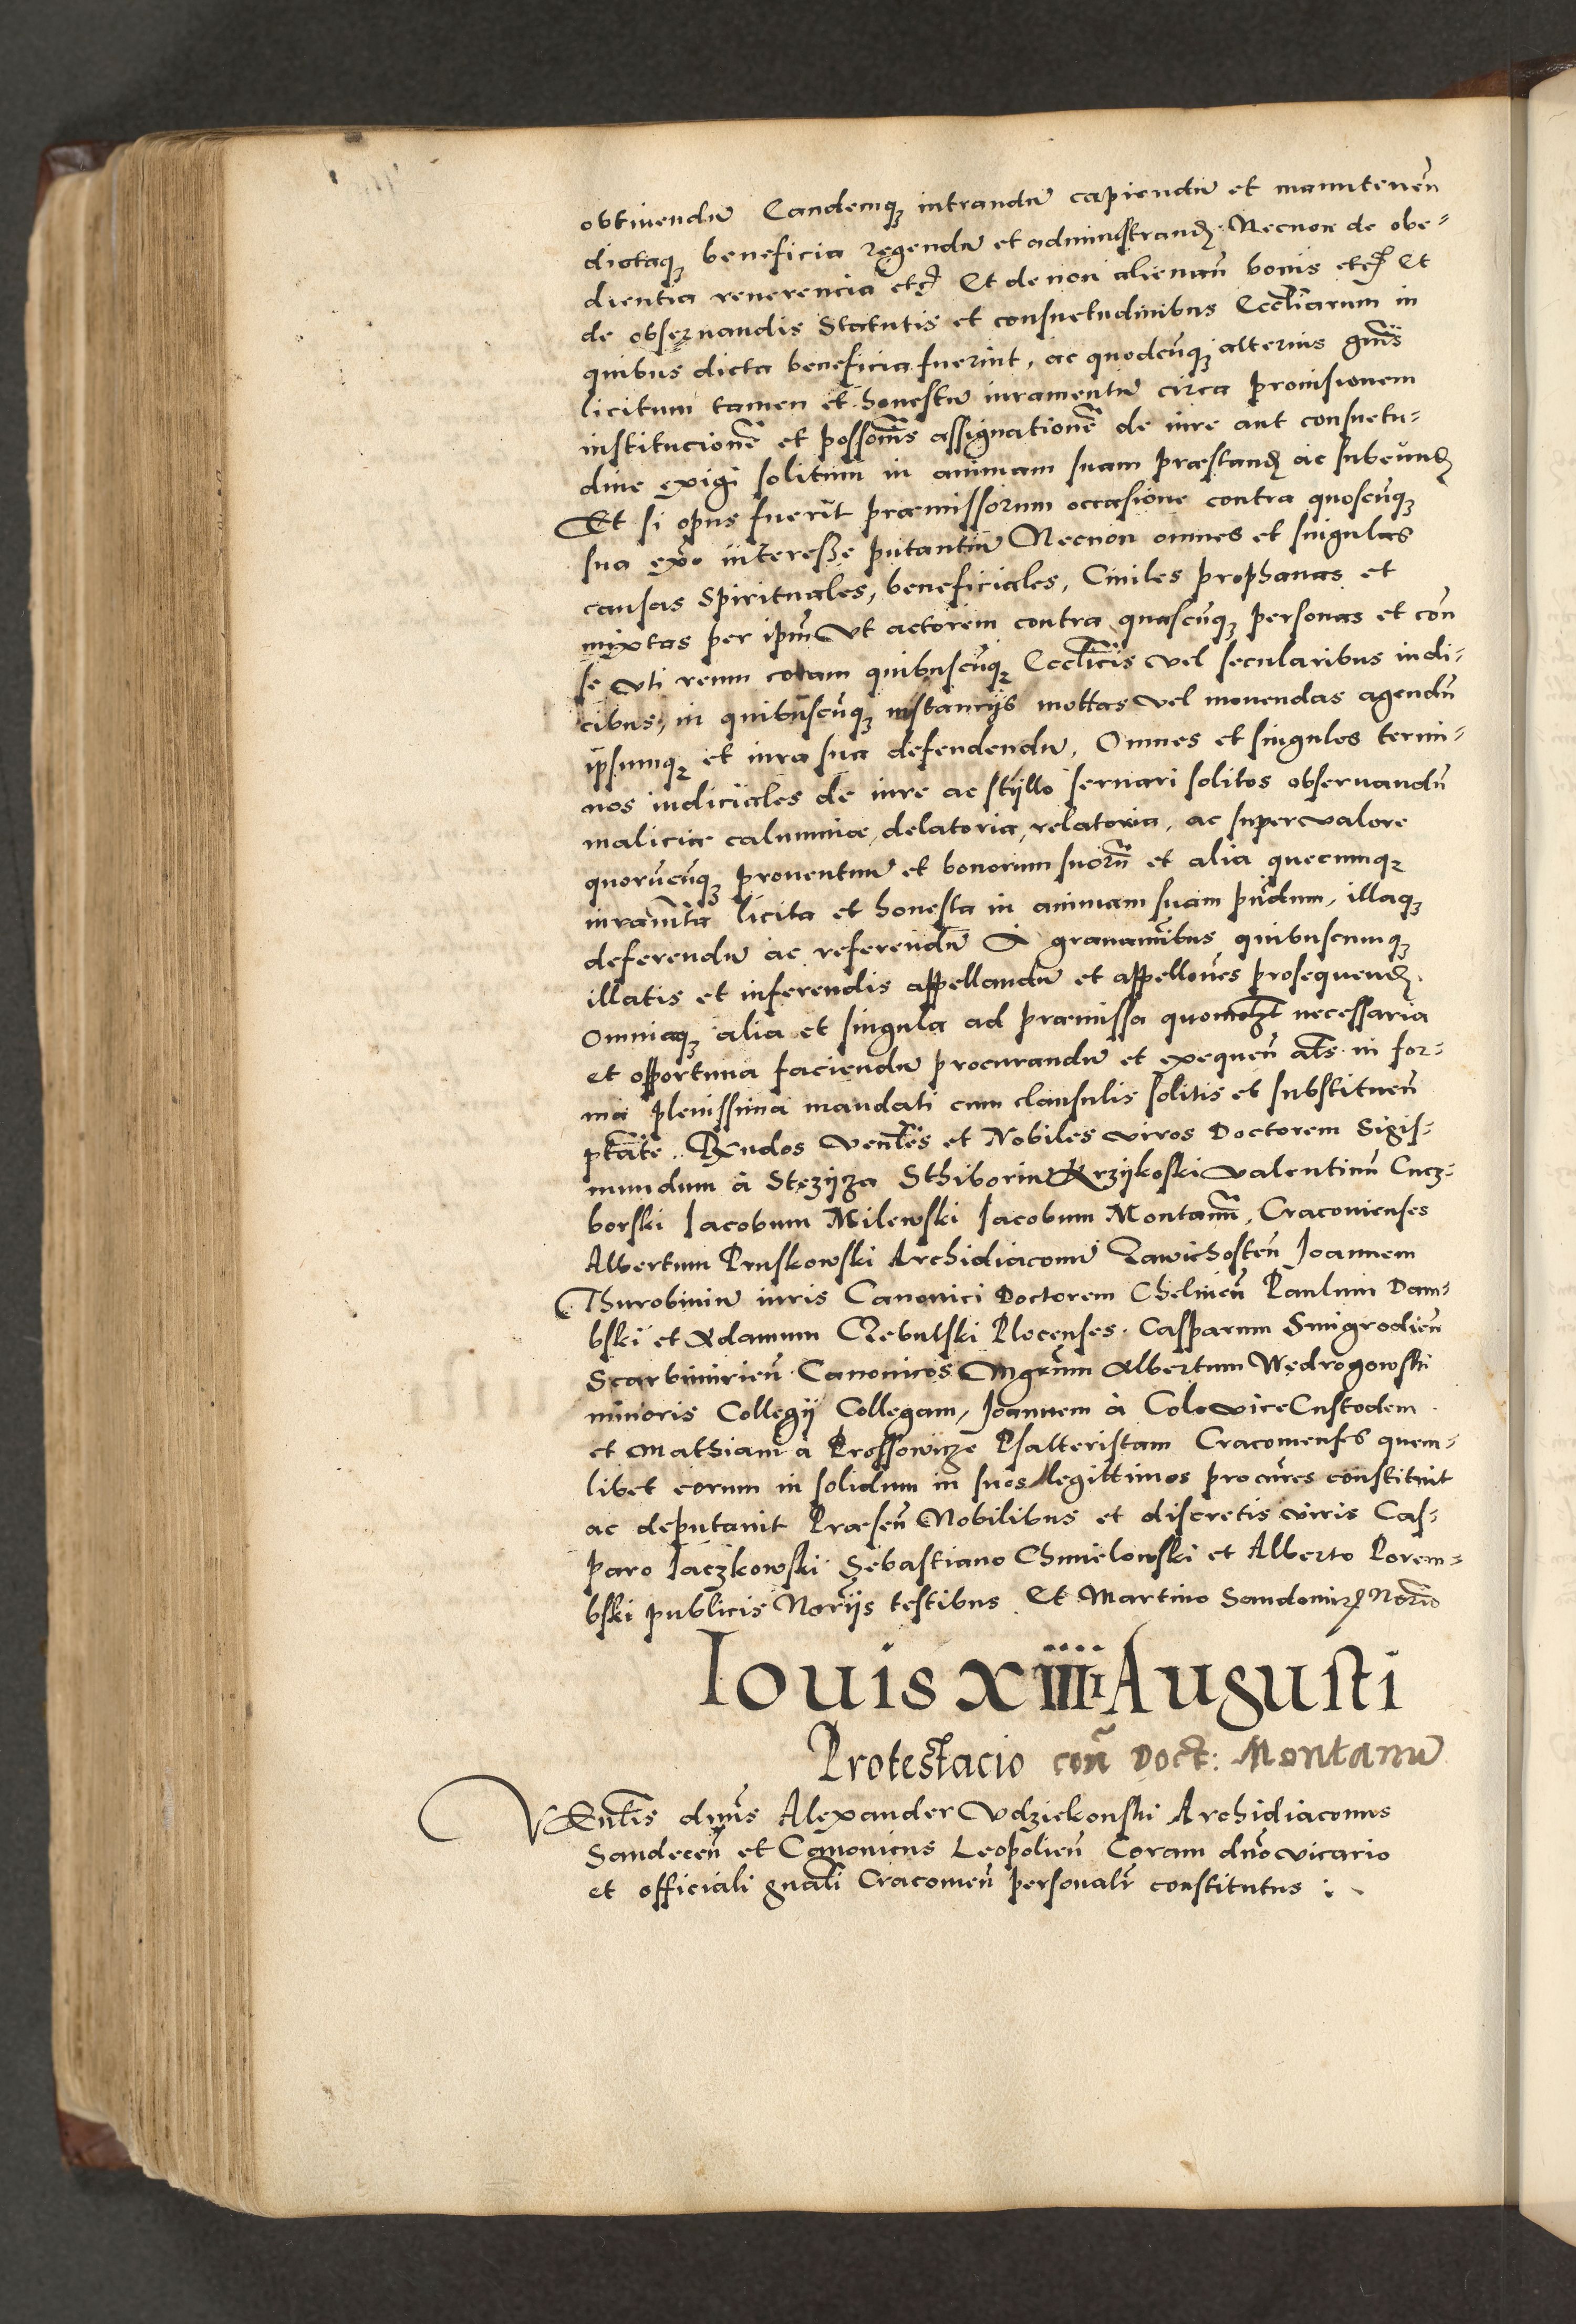 obtinendũ Eandemq₃ intrandũ capiendũ et manuteneñ
dictaq₃ beneficia regendũ et administrand₃ Necnon de obe⸗
dientia reuerencia etc̃ Et de non alienañ bonis etc̃ Et
de obseruandis Statutis et consuetudinibus Eccl̃iarum in
quibus dicta beneficia fuerint, ac quodcũq₃ alterius gñis
licitum tamen et honestũ iuramentũ circa prouisionem
institucionẽ et possoñis assignationẽ de iure aut consuetu⸗
dine exigi solitum in animam suam præstand₃ ac subeund₃
Et si opus fuerit præmissorum occasione contra quoscũq₃
sua exp̃o interesse putantiũ Necnon omnes et singulas
causas Spirituales, beneficiales, Ciuiles prophanas et
mixtas per ip̃m vt actorem contra quascũq₃ personas et coñ
se vti reum coram quibuscũq₃ Eccl̃icis vel secularibus iudi⸗
cibus, in quibuscũq₃ instantijs mottas vel mouendas agendũ
ipsumq₃ et iura sua defendendũ, Omnes et singulos termi⸗
nos iudiciales de iure ac stÿllo seruari solitos obseruandũ
maliciæ calumniæ, delatoria, relatoria, ac super valore
quorũcũq₃ prouentuũ et bonorum suorũ et alia quecunq₃
iuram̃ta licita et honesta in animam suam pñdum, illaq₃
deferendũ ac referendũ A grauam̃ibus quibuscunq₃
illatis et inferendis appellandũ et appelloñes prosequend₃
Omniaq₃ alia et singula ad præmissa quom̃olt necessaria
et opportuna faciendũ procurandũ et exequeñ ats̃ in for⸗
ma plenissima mandati cum clausulis solitis et substitueñ
ptãte. Rẽndos Veñles et Nobiles viros Doctorem Sigis⸗
mundum à Stęzÿza Sthiborium Krzÿkoski Valentinũ Cucz⸗
borski Iacobum Milewski Iacobum Montanũ, Cracouienses
Albertum Pruskowski Archidiaconũ Zawichosteñ Ioannem
Thurobiniũ iuris Canonici Doctorem Chelmeñ Paulum Dam⸗
bski et Adamum Czebulski Plocenses. Casparum Smigrodieñ
Scarbimirieñ Canonicos Mgr̃um Albertum Wędrogowski
minoris Collegÿ Collegam, Ioannem à Colowice Custodem
et Mathiam à Prossowicze Psalteristam Cracouienses quem⸗
libet eorum in solidum in suos legittimos procur̃es constituit
ac deputauit Præseñ Nobilibus et discretis viris Cas⸗
paro Iaczkowski Sebastiano Chmielowski et Alberto Porem⸗
bski publicis Nor̃ijs testibus Et Martino Sandomir₃ Nor̃io
Iouis XIIII Augusti
Protestacio coñ Doct: Montanũ
VEñlis dñus Alexander Vdziekonski Archidiaconus
Sandeceñ et Canonicus Leopolieñ Coram dño vicario
et officiali gñali Cracouieñ personalr̃ constitutus :~